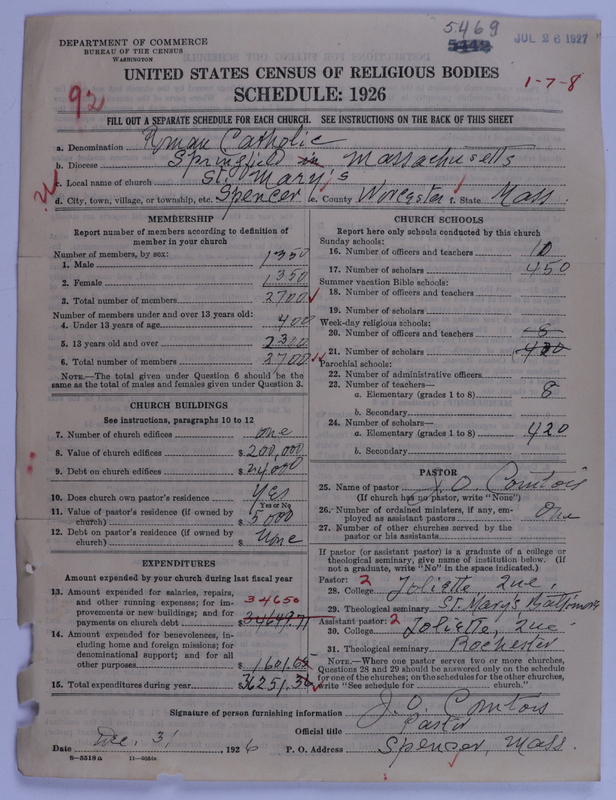 5469
5442
JUL 26 1927
DEPARTMENT OF COMMERCE
BUREAU OF THE CENSUS
WASHINGTON
UNITED STATES CENSUS OF RELIGIOUS BODIES
1-7-8
SCHEDULE: 1926
92
FILL OUT A SEPARATE SCHEDULE FOR EACH CHURCH. SEE INSTRUCTIONS ON THE BACK OF THIS SHEET
a. Denomination Roman Catholic
b. Diocese Springfield in Massachusetts
c. Local name of church St. Mary's
d. City, town, village, or township, etc. Spencer e. County Worcester f. State Mass.
MEMBERSHIP
Report number of members according to definition of
member in your church
Number of members, by sex:
1. Male 1350
2. Female 1350
3. Total number of members 2700
Number of members under and over 13 years old:
4. Under 13 years of age 400
5. 13 years old and over 2300
6. Total number of members 2700
NOTE.—The total given under Question 6 should be the
same as the total of males and females given under Question 3.
CHURCH BUILDINGS
See instructions, paragraphs 10 to 12
7. Number of church edifices one
8. Value of church edifices $200,000
9. Debt on church edifices $24,000
10. Does church own pastor's residence Yes
Yes or No
11. Value of pastor's residence (if owned by
church) $5000
12. Debt on pastor's residence (if owned by
church) $None
EXPENDITURES
Amount expended by your church during last fiscal year
13. Amount expended for salaries, repairs,
and other running expenses; for im-
provements or new buildings; and for
payments on church debt 34650 $34649.71
14. Amount expended for benevolences, in-
cluding home and foreign missions; for
denominational support; and for all
other purposes $1601.65
15. Total expenditures during year $36251.36
CHURCH SCHOOLS
Report here only schools conducted by this church
Sunday schools:
16. Number of officers and teachers 10
17. Number of scholars 450
Summer vacation Bible schools:
18. Number of officers and teachers
19. Number of scholars
Week-day religious schools:
20. Number of officers and teachers 8
21. Number of scholars 420
Parochial schools:
22. Number of administrative officers
23. Number of teachers—
a. Elementary (grades 1 to 8) 8
b. Secondary
24. Number of scholars—
a. Elementary (grades 1 to 8) 420
b. Secondary
PASTOR
25. Name of pastor J. O. Comtois
(If church has no pastor, write "None")
26. Number of ordained ministers, if any, em-
ployed as assistant pastors One
27. Number of other churches served by the
pastor or his assistants
If pastor (or assistant pastor) is a graduate of a college or
theological seminary, give name of institution below. (If
not a graduate, write "No" in the space indicated.)
Pastor: 2
28. College Joliette Que.
29. Theological seminary St. Mary's Baltimore
Assistant pastor: 2
30. College Joliette, Que
31. Theological seminary Rochester
NOTE.—Where one pastor serves two or more churches,
Questions 28 and 29 should be answered only on the schedule
for one of the churches; on the schedules for the other churches,
write "See schedule for church."
Signature of person furnishing information J. O. Comtois
Official title Pastor
Date Dec. 31 1926 P. O. Address Spencer, Mass.
8-5518a 11-9054a